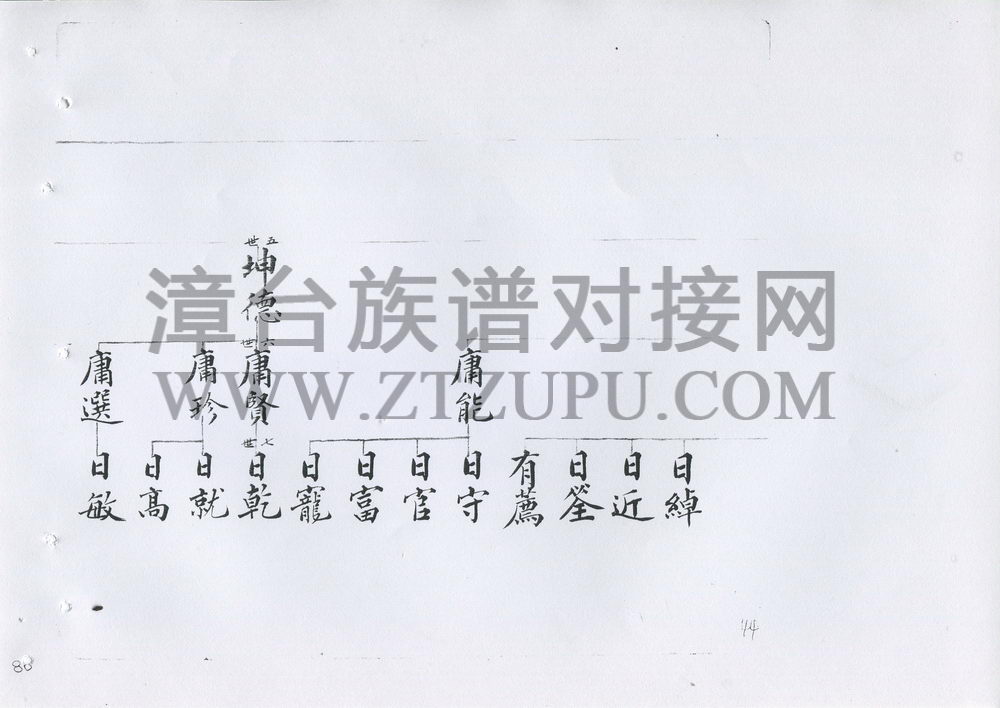 五世
坤德
六世
庸能
庸賢
庸珍
庸選
七世
日綽
日近
日筌
有薦
日守
日官
日富
日寵
日乾
日就
日高
日敏
漳台族谱对接网
WWW.ZTZUPU.COM
44
80